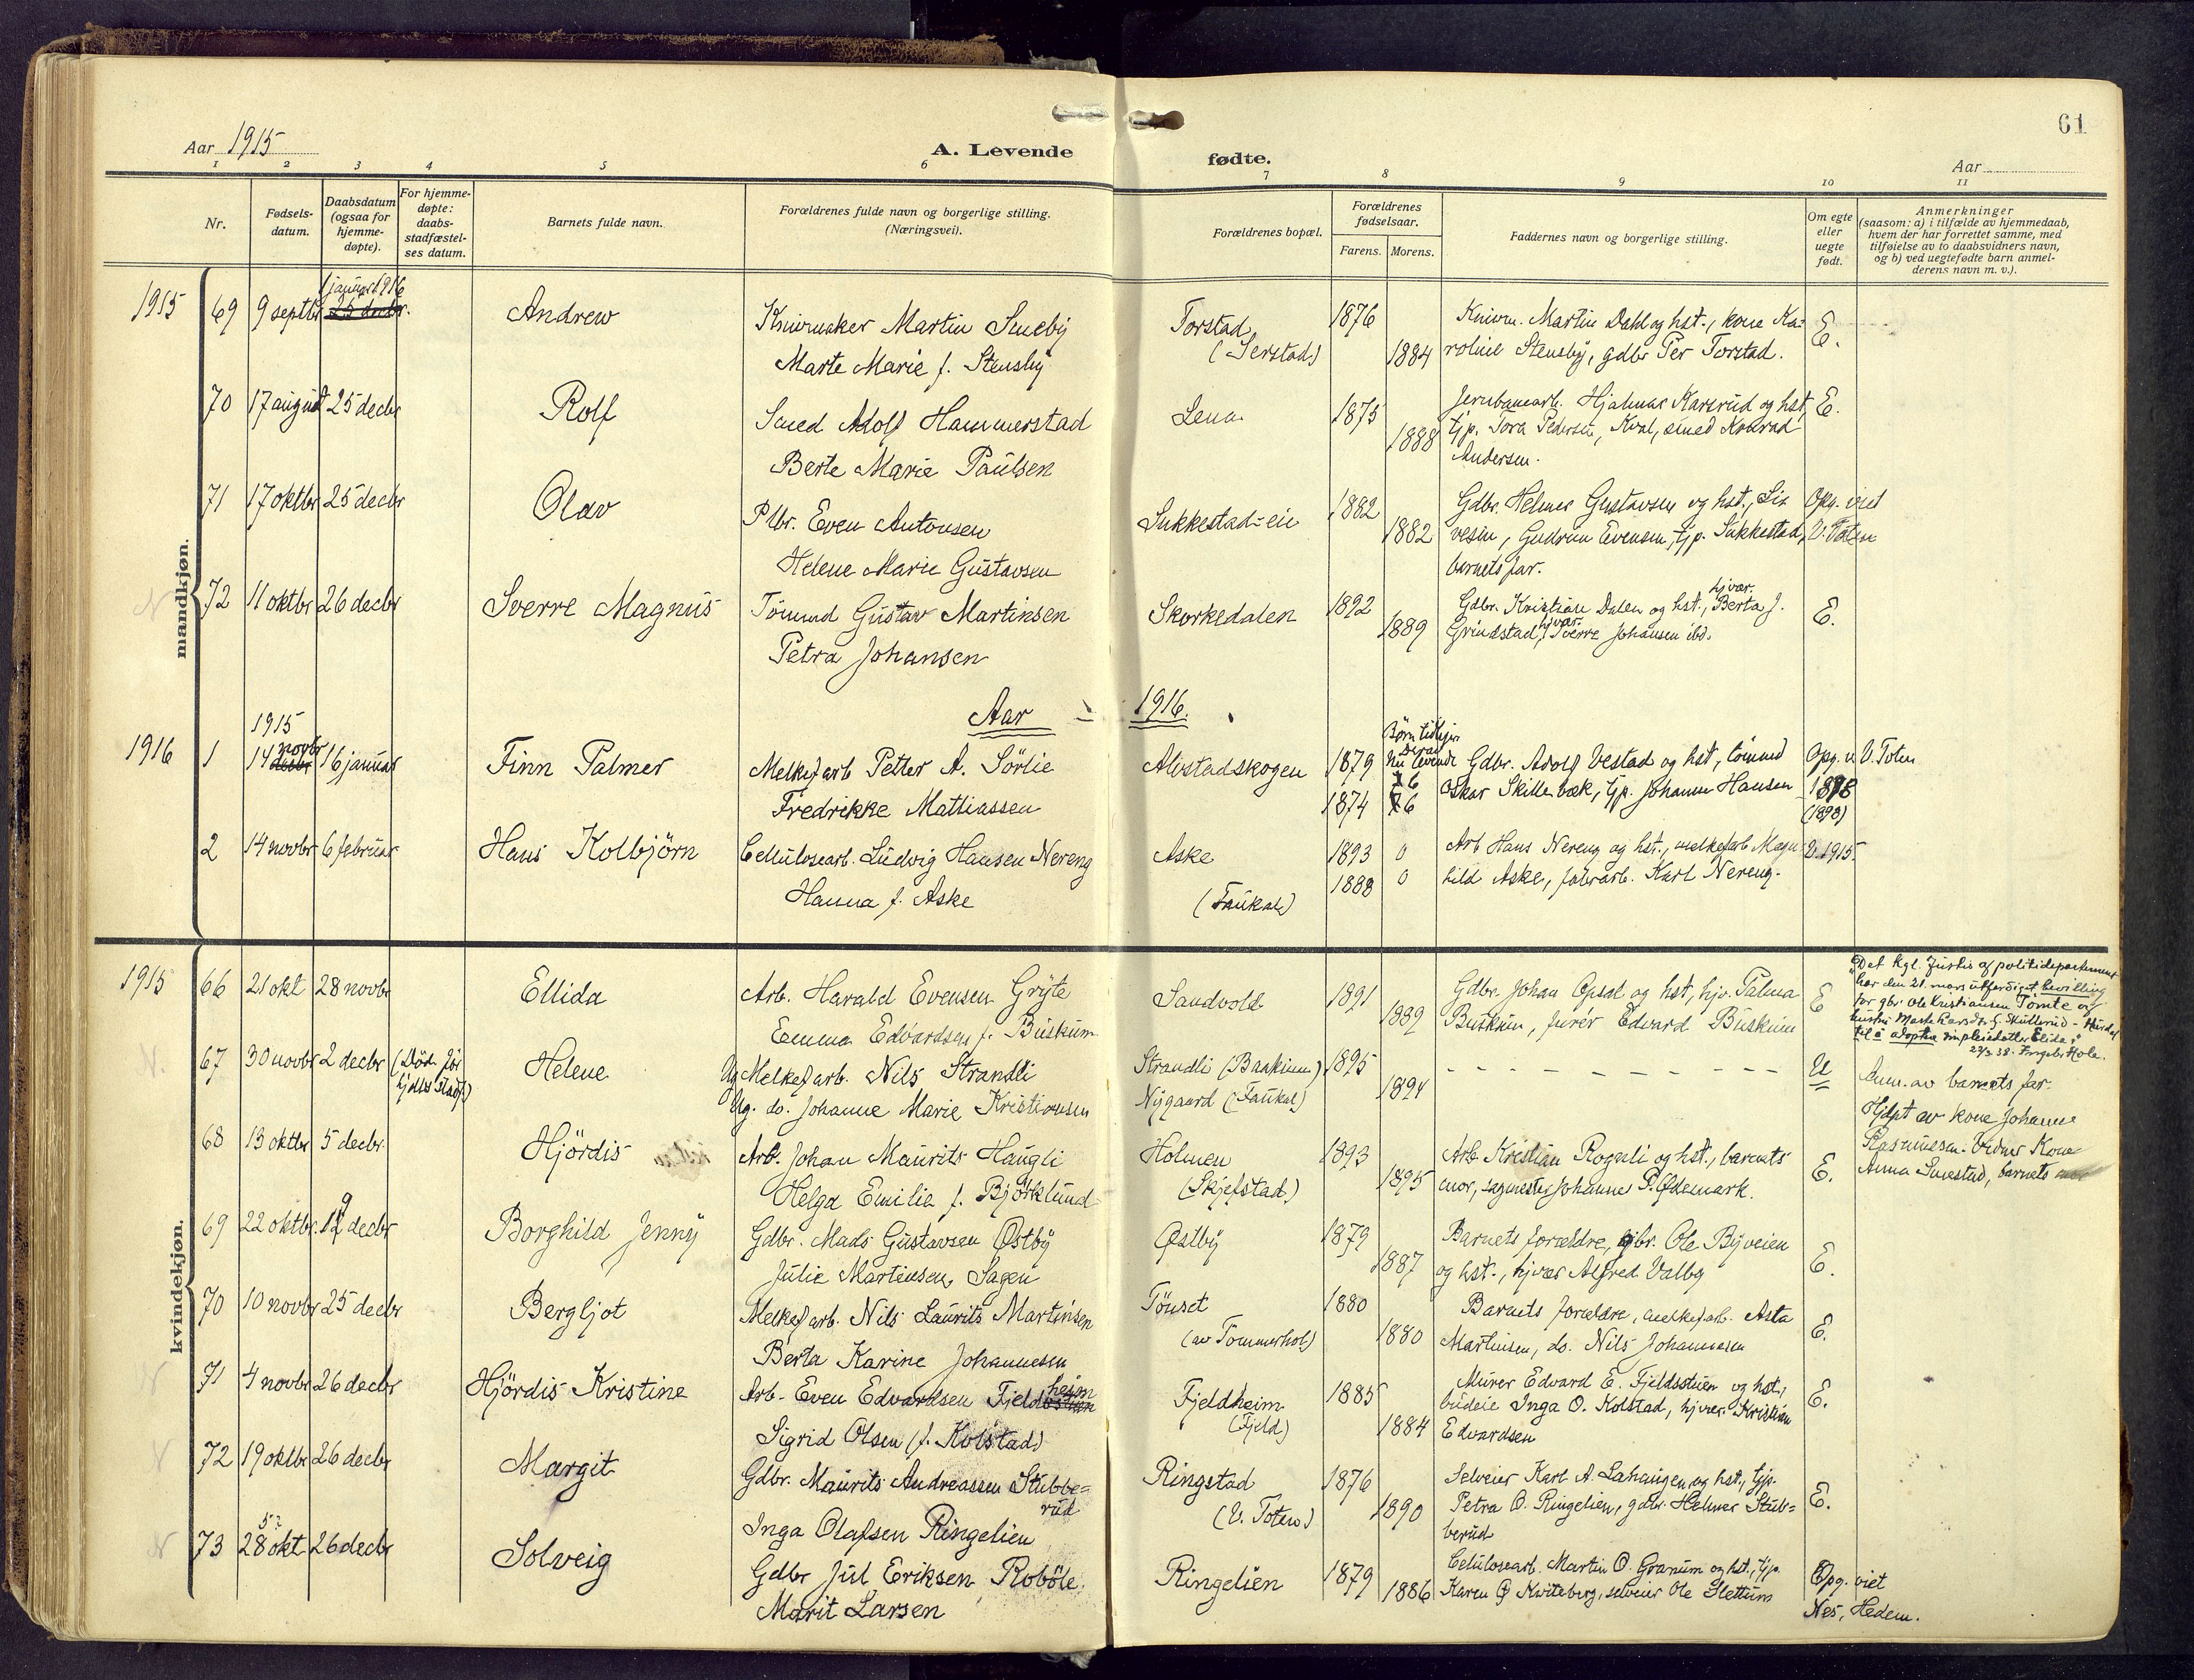 61
Aar 1915
A. Levende
fødte.
Aar
1 2 3 4 5 6 7 8 9 10 11
Nr.
Fødsels-
datum.
Daabsdatum
(ogsaa for
hjemme-
døpte).
For hjemme-
døpte:
daabs-
stadfæstel-
ses datum.
Barnets fulde navn.
Forældrenes fulde navn og borgerlige stilling.
(Næringsvei).
Forældrenes bopæl.
Forældrenes
fødselsaar.
Farens. Morens.
Faddernes navn og borgerlige stilling.
Om egte
eller
uegte
født.
Anmerkninger
(saasom: a) i tilfælde av hjemmedaab,
hvem der har forrettet samme, med
tilføielse av to daabsvidners navn,
og b) ved uegtefødte barn anmel-
derens navn m. v.).
mandkjøn.
1 januar 1916
1915 69 9 septbr 25 decbr. Andrew
Knivmaker Martin Sneby Torstad 1876 Knivm. Martin Dahl og hst., kone Ka- E.
Marte Marie f. Stensby 1884 roline Stensby, gdbr Per Torstad.
70 17 august 25 decbr Rolf
Smed Adolf Hammerstad Lena 1875 Jernbanearb. Hjalmar Karsrud og hst, E.
1888 tjp. Tora Pedersen, Kval, smed Konrad
Berte Marie Paulsen Andersen.
71 17 oktbr 25 decbr Olav
Even Antonsen Sukkestad-eie 1882 Gdbr. Helmer Gustavsen og hst., Opg. viet
1882 Gudrun Evensen, tjp. Sukkestad, V. Toten
Helene Marie Gustavsen barnets far.
72 11 oktbr 26 decbr Sverre Magnus
Tömmd Gustav Martinsen Skorkedalen 1892 Gdbr. Kristian Dalen og hst., hjvær. Berta J. E.
1889 Grindstad, hjvær. Sverre Johansen ibd.
Petra Johansen
Aar - 1916.
1915
1916 1 14 decbr novbr 16 januar Finn Palmer
Børn tidliger
Derav
nu levende
Melkefarb Petter A. Sörlie Alvstadskogen 1879 6 Gdbr. Adolf Vestad og hst, tömmd Opg. v. V. Toten
Fredrikke Mattiassen 1874 6 Oskar Skillebæk, tjp. Johanne Hansen 1898
(1898)
2 14 novbr 6 februar Hans Kolbjörn
Cellulosearb. Ludvig Hansen Nereng Aske 1893 0 Arb Hans Nereng og hst., melkefarb Magn- V. 1915.
Hanna f. Aske (Faukal) 1888 0 hild Aske, fabrarb. Karl Nereng.
kvindekjøn.
1915 66 21 okt 28 novbr Ellida
Arb. Harald Evensen Gryte Sandvold 1891 Gdbr. Johan Opsal og hst, hjv. Palma E
Emma Edvardsen f. Buskum 1889 Buskum, Edvard Buskum
"Det kgl. Justis og politidepartement
har den 21. mars utferdiget bevilling
for gbr. Ole Kristiansen Tömte og
hustru Marte f. Skullerud - Hurdal
til å adoptere sin pleiedatter Elida."
67 30 novbr 2 decbr (Död för Helene
Ug Melkefarb. Nils Strandli Strandli (Baakinn) 1895 - - - - - - - - U Anm. av barnets far.
Ug. do. Johanne Marie Kristiansen Nygaard (Faukal) 1894
Hjdpt av kone Johanne
Rasmussen. Vidner Kone
Anna Sivestad, barnets mor
68 13 oktbr 5 decbr. Hjördis
Arb. Johan Maurits Haugli Holmen 1893 Arb. Kristian Rognli og hst., barnets E.
Helga Emilie f. Björklund (Skjefstad) 1895 mor, sagmester Johannes P. Ødemark.
69 22 oktbr. 19 decbr Borghild Jenny
Gdbr. Mads Gustavsen Østby Østby 1879 Barnets forældre, gbr. Ole Byveien E.
Julie Martinsen Sagen 1887 og hst., hjvær Alfred Valby
70 10 novbr 25 decbr Bergljot
Melkefarb. Nils Laurits Martinsen Tönset 1880 Barnets forældre, melkefarb. Asta E.
Berta Karine Johannesen (av Tömmerhol) 1880 Martinsen, do. Nils Johannesen
71 4 novbr 26 decbr Hjördis Kristine
Arb. Even Edvardsen Fjeldheim Fjeldheim 1885 Murer Edvard E. Fjeldsstuen og hst., E.
(Fjeld) budeie Inga O. Kolstad, hjvær. Kristian
Sigrid Olsen (f. Kolstad) 1884 Edvardsen
72 19 oktbr 26 decbr Margit
Gdbr. Maurits Andreassen Stubbe= Ringstad 1876 Selveier Karl A. Lahaugen og hst., tjp. E.
rud (V. Toten) 1890 Petra O. Ringelien, gdbr. Helmer Stub=
Inga Olafsen Ringelien berud
5?
73 28 okt 26 decbr Solveig
Gdbr Jul Eriksen Roböle. Ringelien 1879 Celulosearb. Martin O. Granum og hst., tjp. Opg. viet
1886 Karen O Kviteberg, selveier Ole Slettum Nes, Hedem.
Marit Larsen